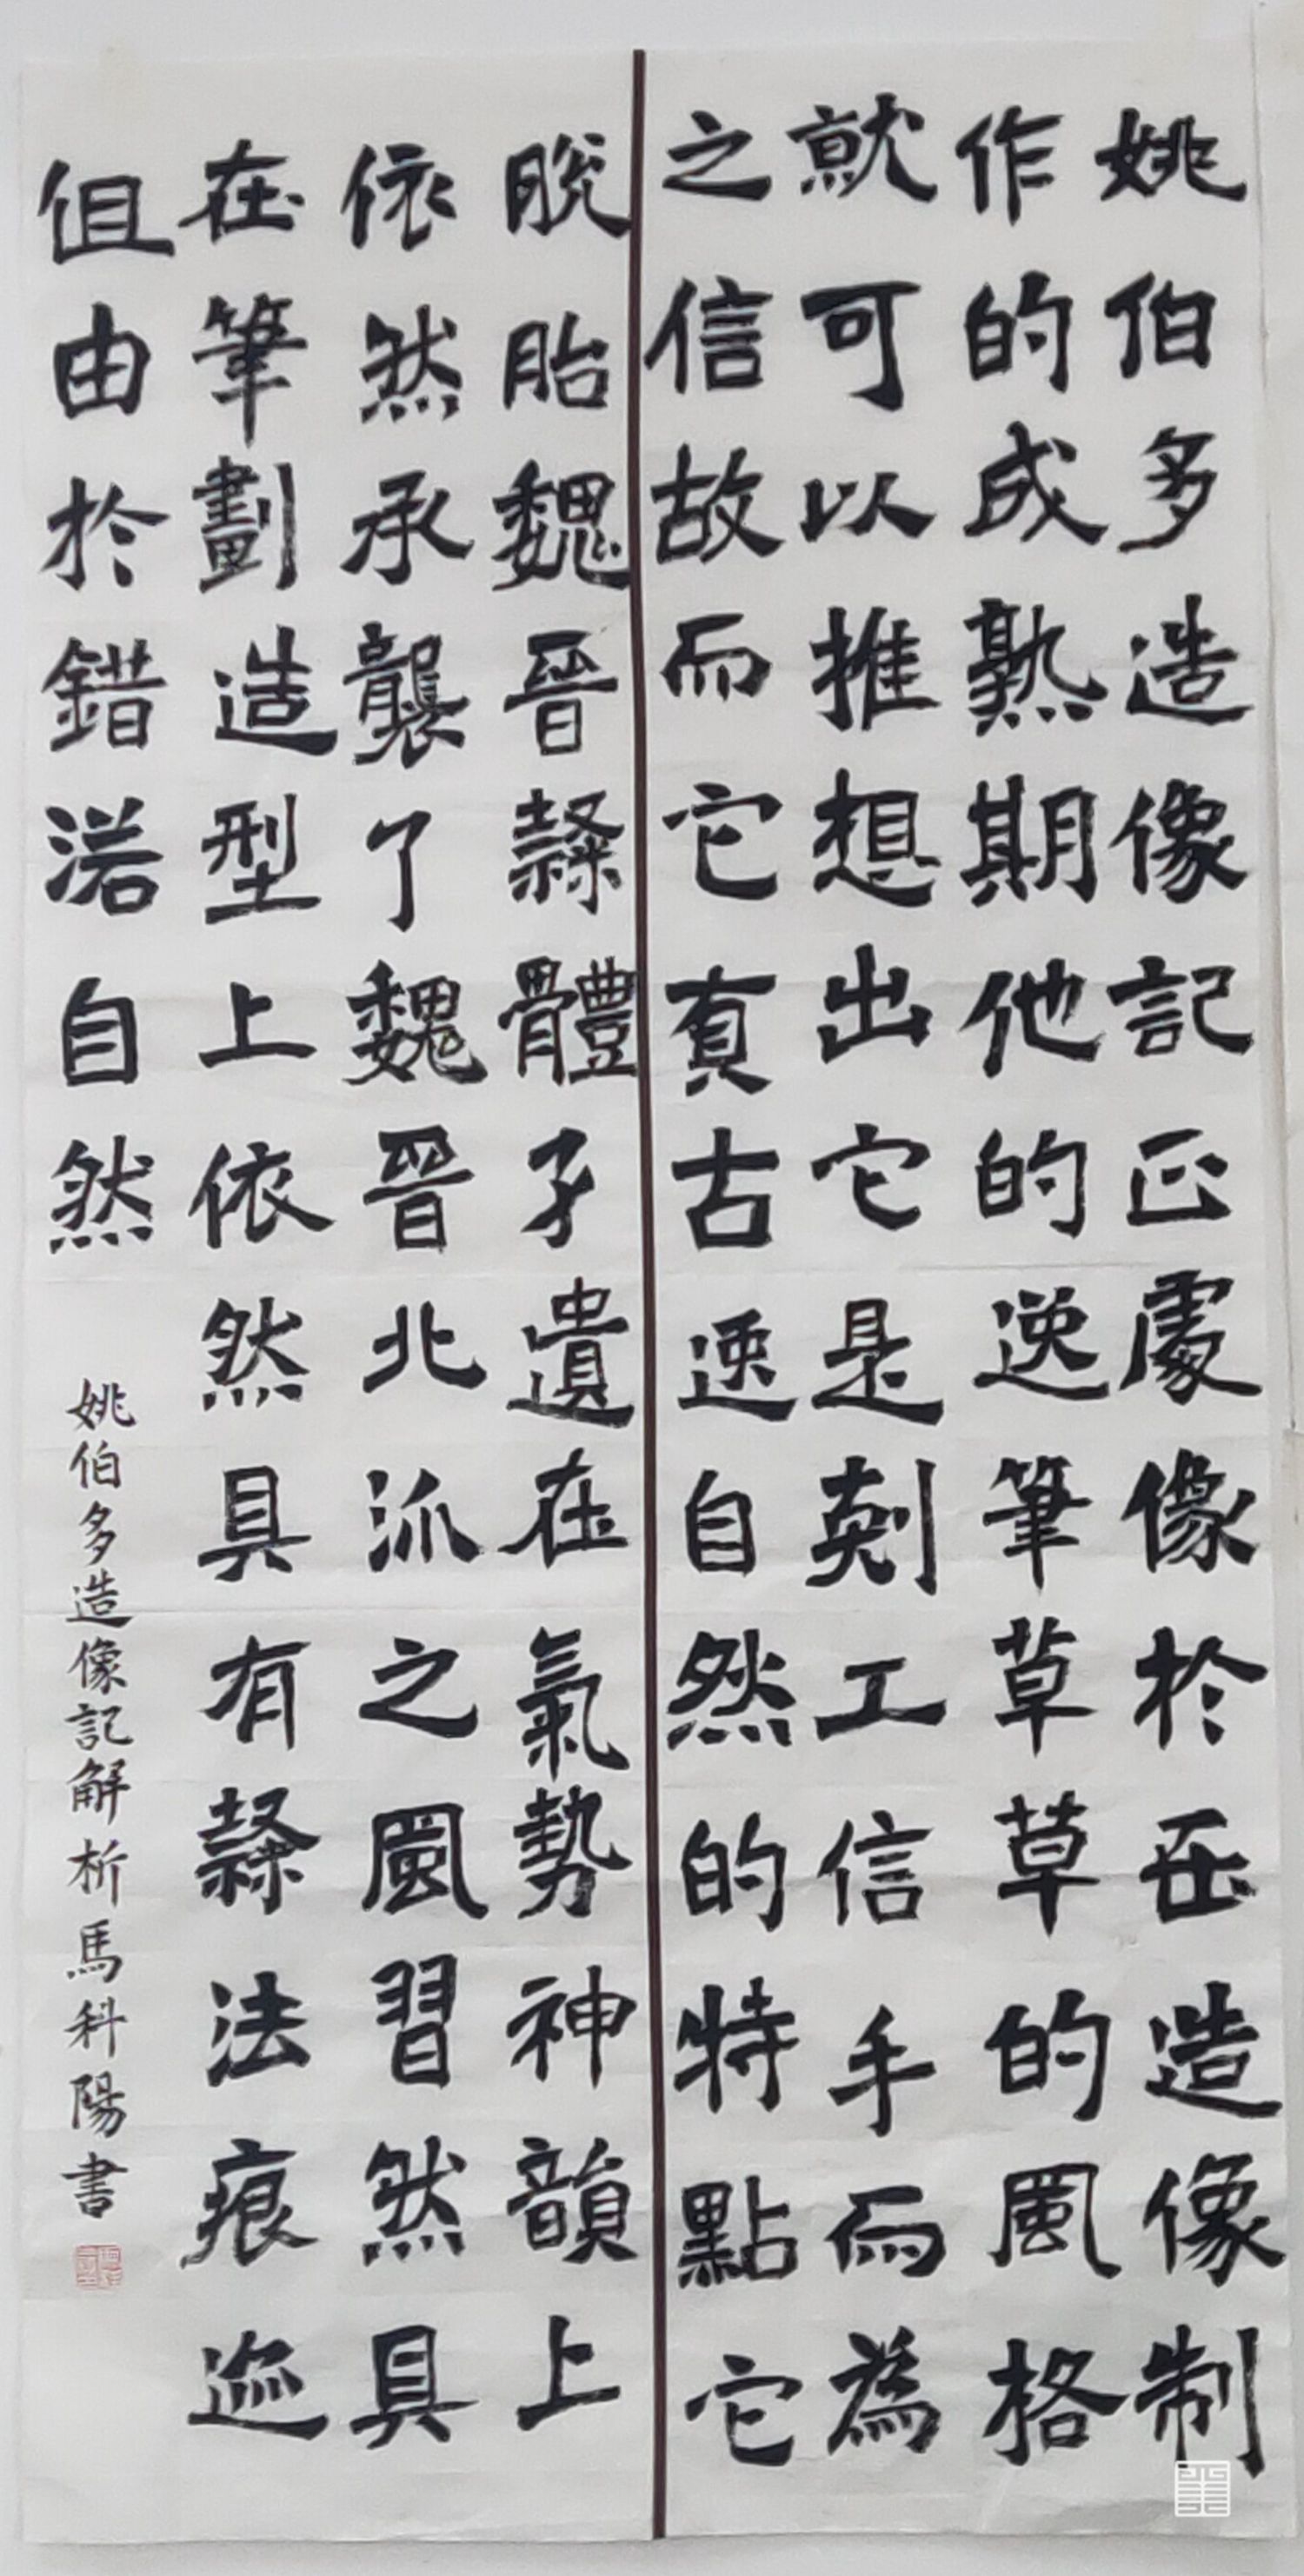 姚伯多造像記正處像於在造像制
作的成熟期他的逆筆草草的風格
就可以推想出它是刻工信手而為
之信故而它有古逆自然的特點它
脫胎魏晉隸體子遺在氣勢神韻上
依然承襲了魏晉北派之風習然具
在筆劃造型上依然具有隸法痕迹
但由於錯落自然
姚伯多造像記解析馬科陽書